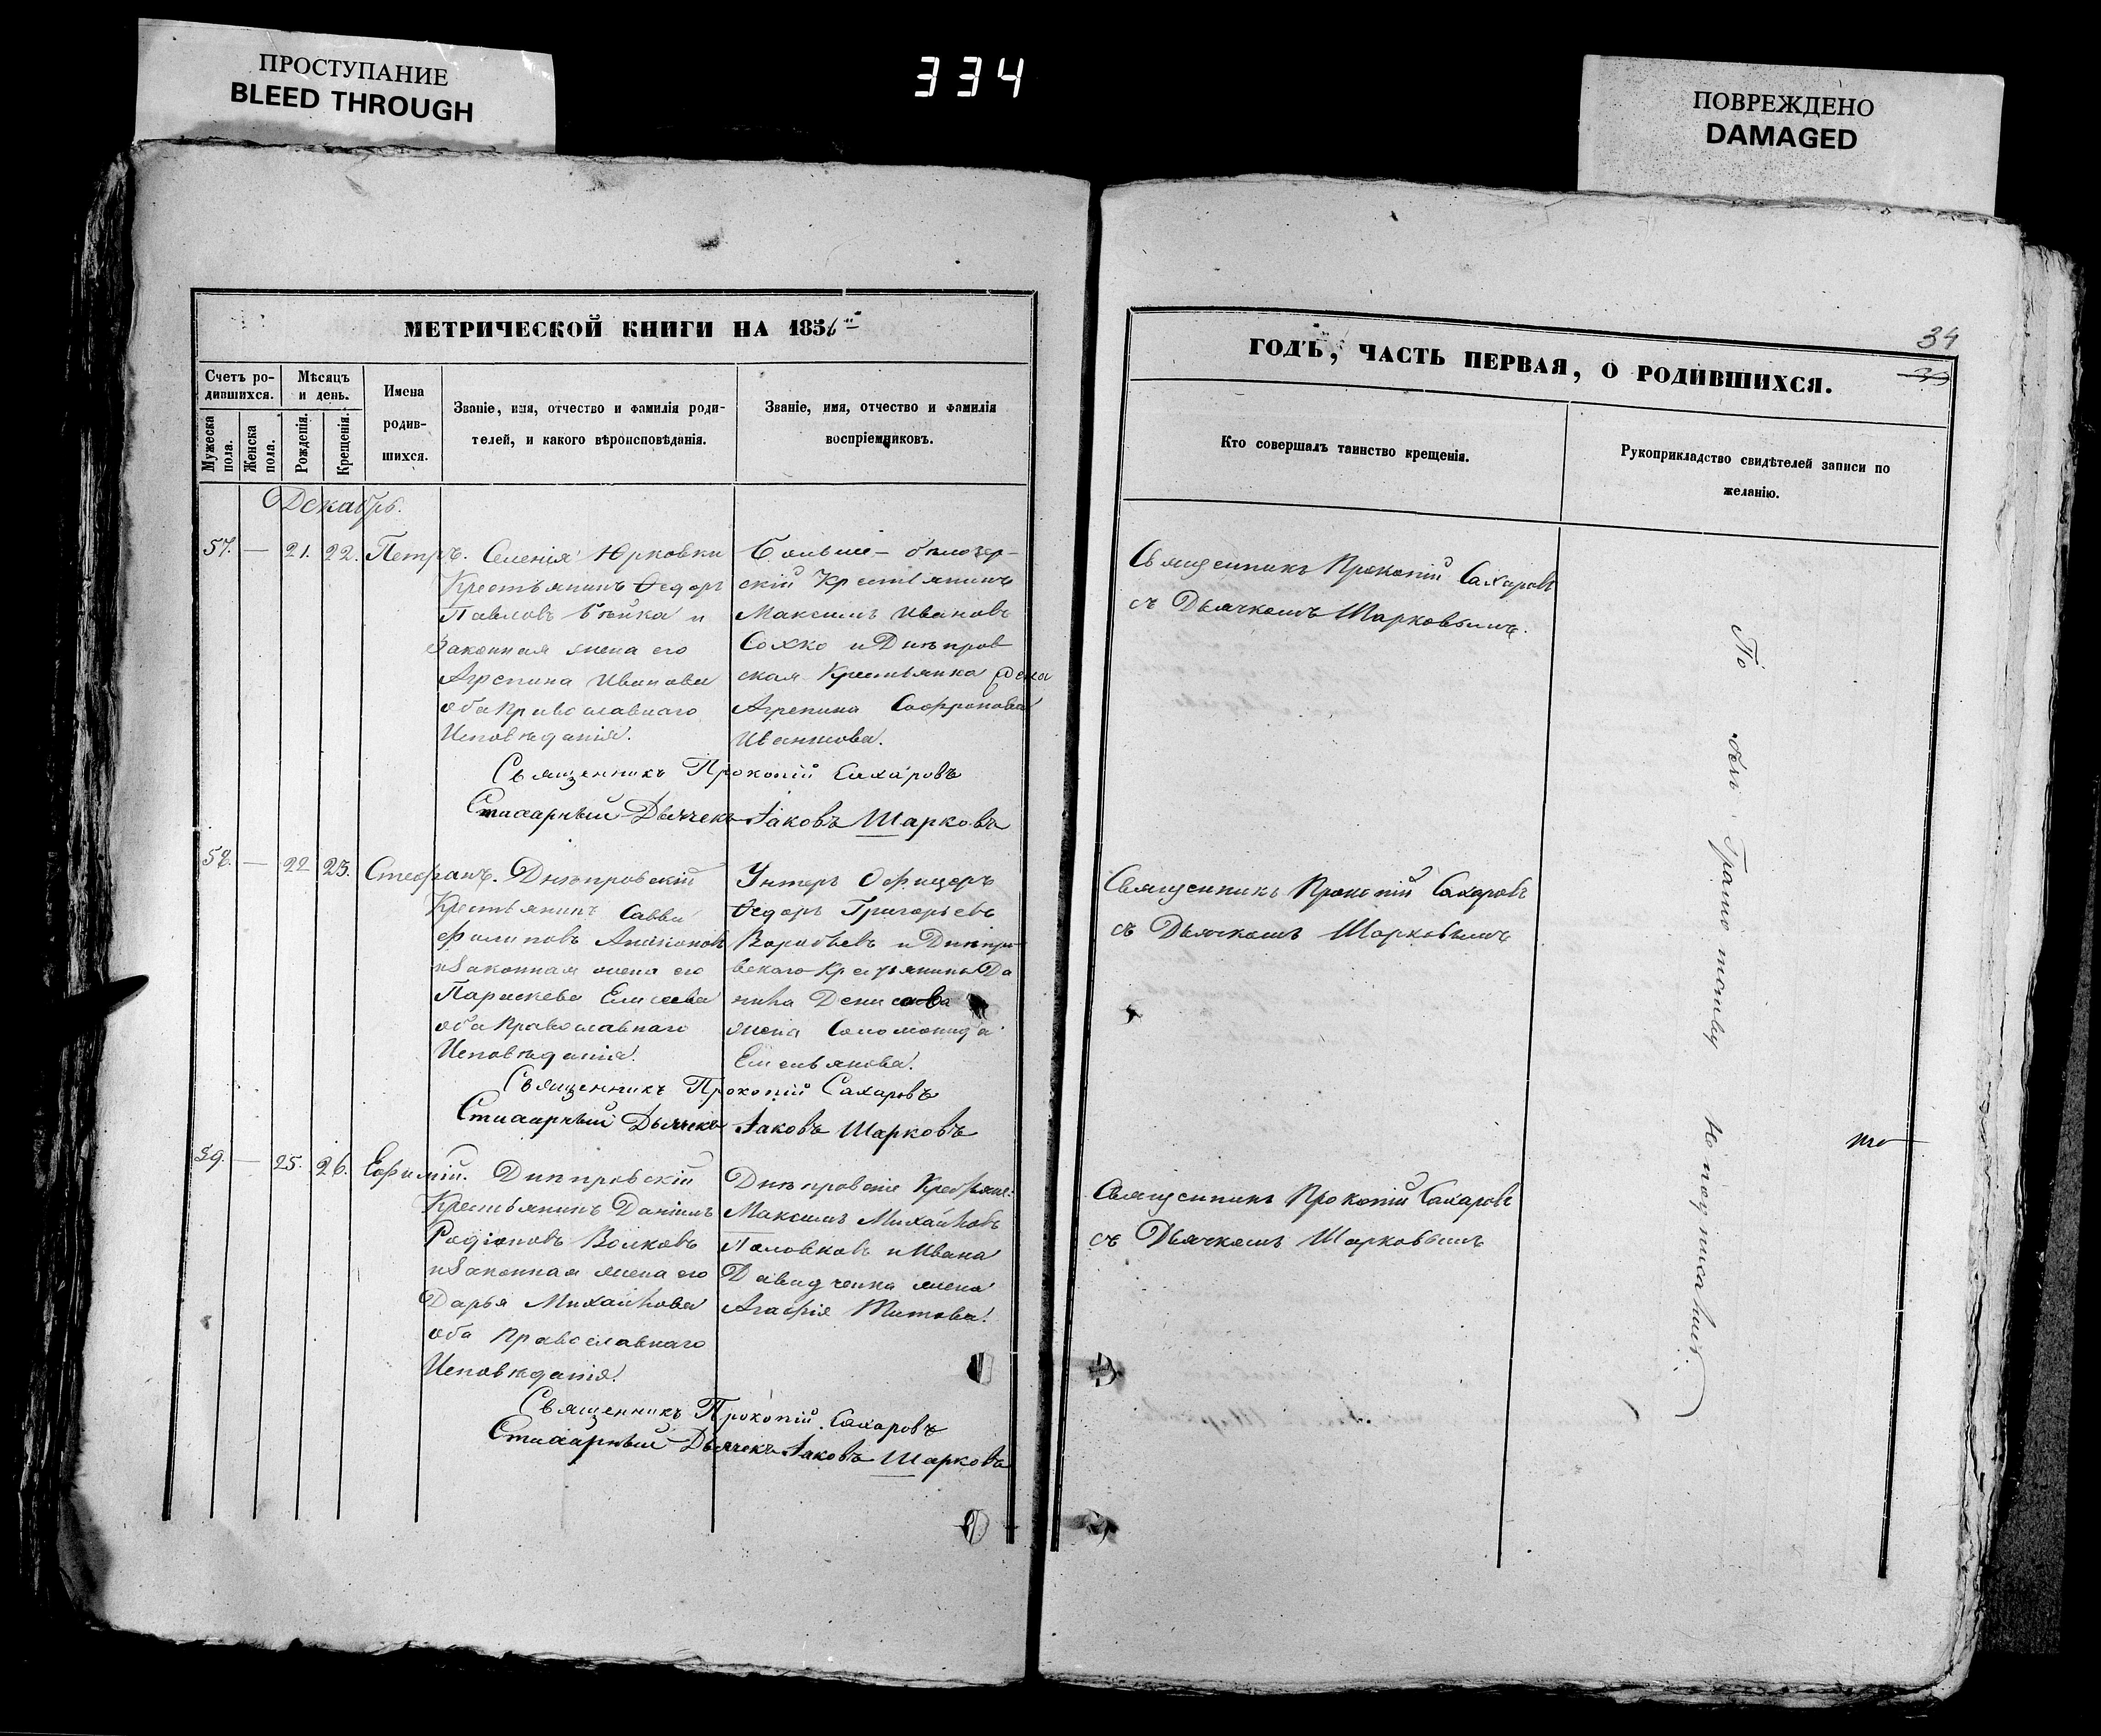 ПРОСТУПАНИЕ
BLEED THROUGH
334
ПОВРЕЖДЕНО
DAMAGED
МЕТРИЧЕСКОЙ КНИГИ НА 1856
Счетъ ро-
дившихся.
Мужеска
пола.
Женска
пола.
Мѣсяцъ
и день.
Рожденія.
Крещенія.
Имена
родив-
шихся.
Званіе, имя, отчество и фамилія роди-
телей, и какого вѣроисповѣданія.
Званіе, имя, отчество и фамилія
воспріемниковъ.
Декабрь.
57. — 21. 22. Петръ.
Селенія Юрковки
Крестьянинъ Ѳедоръ
Павловъ и
Законная жена его
Агрепина Иванова
оба Православнаго
Исповѣданія.
Больше-бѣлозер-
скій Крестьянинъ
Максимъ Ивановъ
Сохко и Днѣпров
ская Крестьянка
Агрепина Софронова
Священникъ Прокопій Сахаровъ
Стихарный Дьячекъ Іаковъ Шарковъ
58. — 22 23. Стефанъ.
Днѣпровскій
Крестьянинъ Савва
Филиповъ
и Законная жена его
Парискева Елисеева
оба Православнаго
Исповѣданія.
Унтеръ Офицеръ
Ѳедоръ Григорьевъ
Воробьевъ и Днѣпро-
вскаго Крестьянина Да
нила Денисова
жена Соломонида
Емельянова.
Священникъ Прокопій Сахаровъ
Стихарный Дьячекъ Іаковъ Шарковъ
59. — 25. 26. Ефимій.
Днѣпровскій
Крестьянинъ Даніилъ
Родіоновъ Волковъ
и Законная жена его
Дарья Михайлова
оба Православнаго
Исповѣданія.
Днѣпровскіе Крестьяне:
Максимъ Михайловъ
Половковъ и Ивана
Давидченка жена
Агафія Титова.
Священникъ Прокопій Сахаровъ
Стихарный Дьячекъ Іаковъ Шарковъ
34
ГОДЪ, ЧАСТЬ ПЕРВАЯ, О РОДИВШИХСЯ.
Кто совершалъ таинство крещенія.
Рукоприкладство свидѣтелей записи по
желанію.
Священникъ Прокопій Сахаровъ
съ Дьячкомъ Шарковымъ.
Священникъ Прокопій Сахаровъ
съ Дьячкомъ Шарковымъ
Священникъ Прокопій Сахаровъ
съ Дьячкомъ Шарковымъ
По